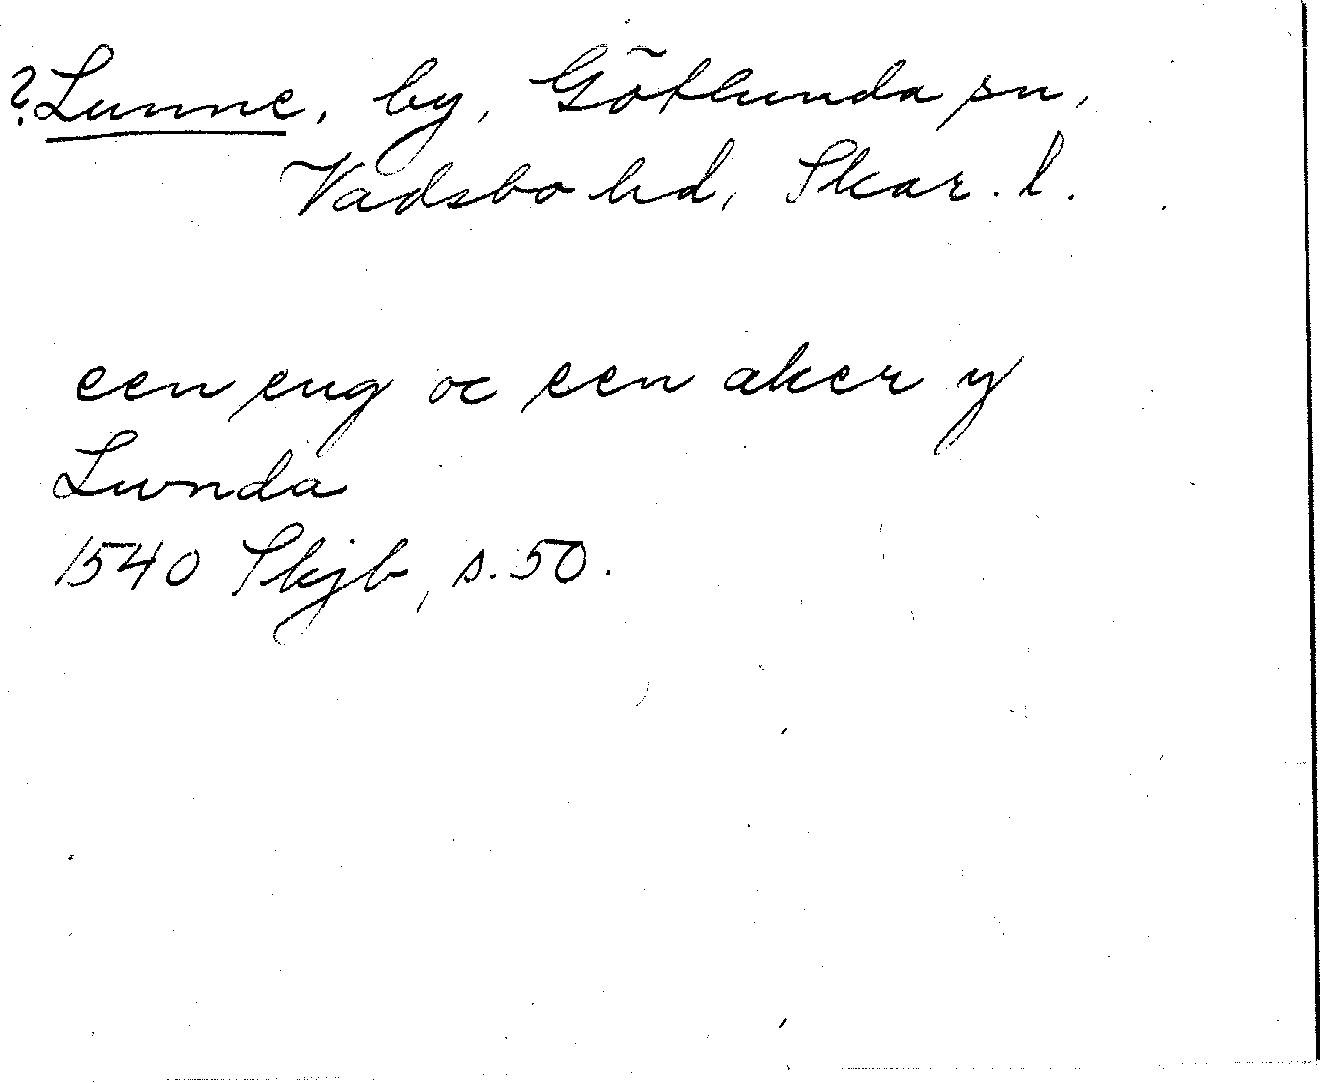 ?Lunne, by, Götlunda sn,
Vadsbo hd, Skar. l.
een eng oc een aker y
Lwnda
1540 Skjb, s. 50.